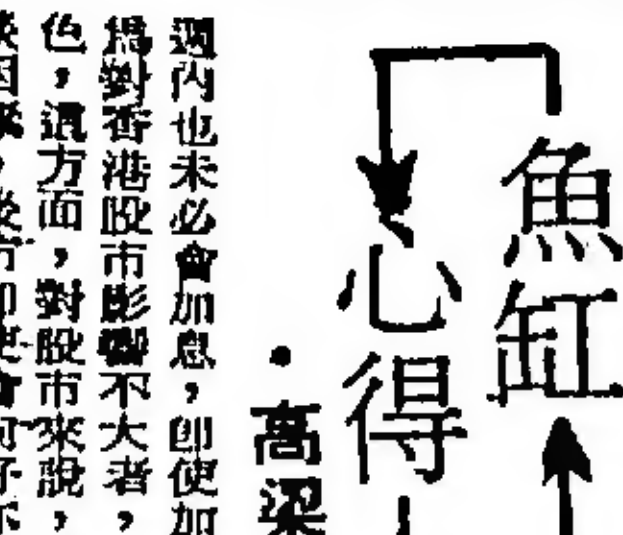 魚缸
心得
·高梁
週內也未必會加息，即使加
爲對香港股市影響不大者，
色，這方面，對股市來說，